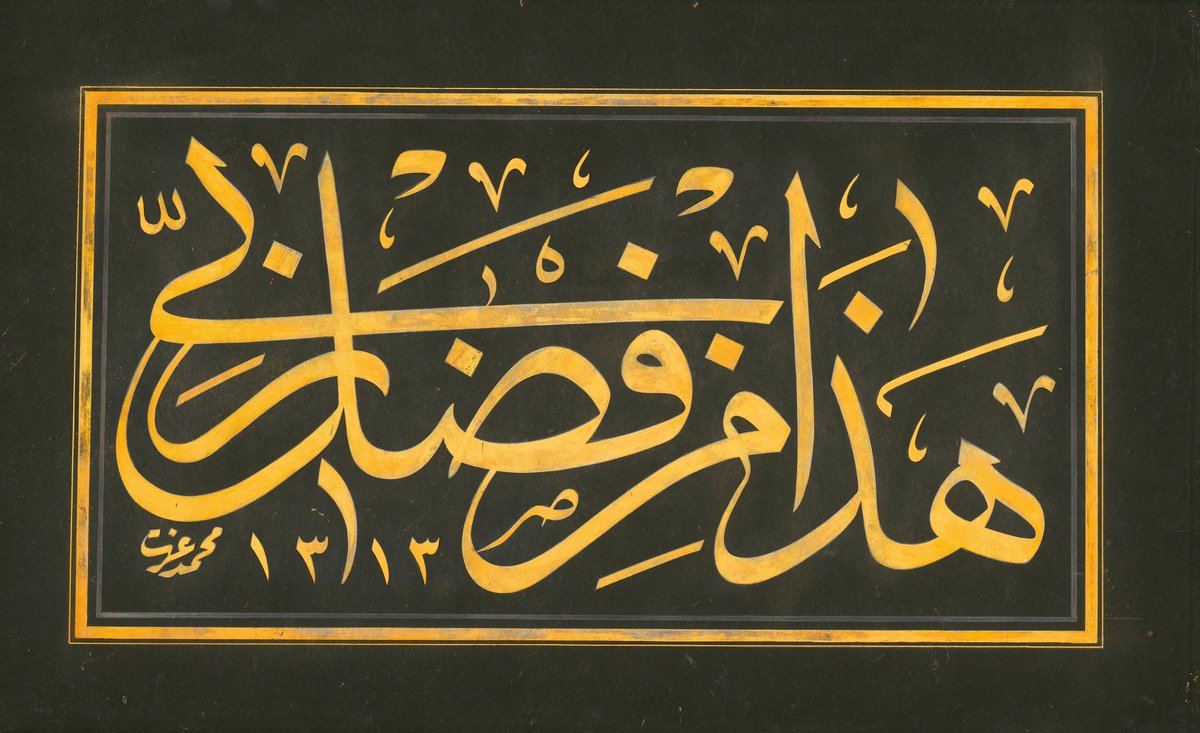 هَذَا مِنْ فَضْلِ رَبِّى
محمد عزت ١٣١٣